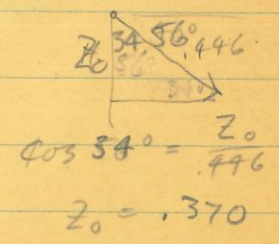 Z₀ 34 56° .446
56°
34°
cos 34° = Z₀ / .446
Z₀ = .370